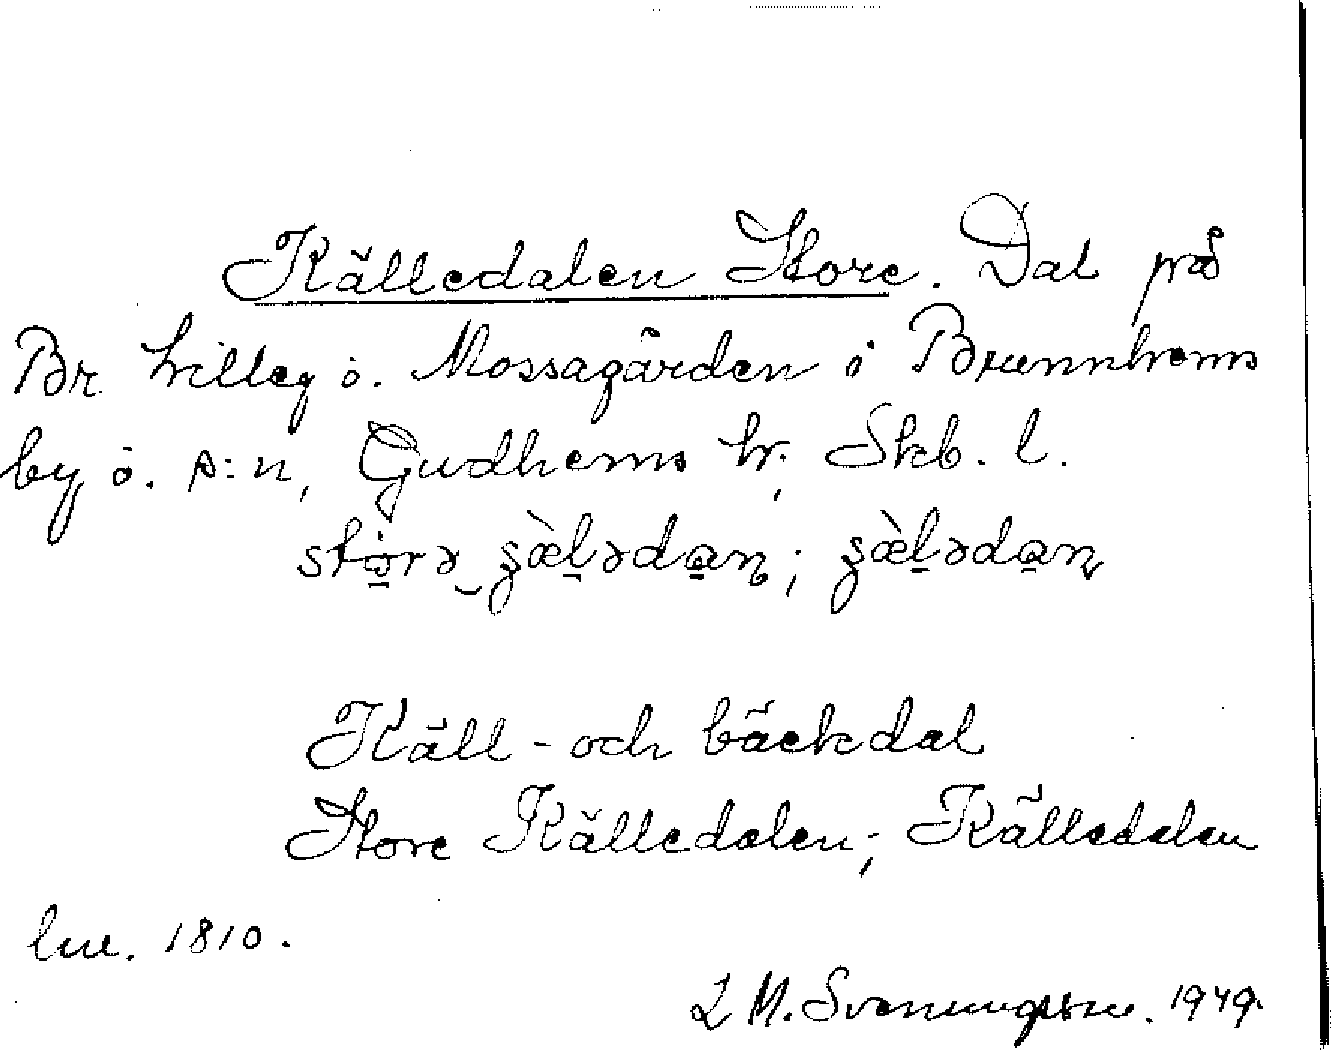 Källedalen Store. Dal på
Br. Lilleg o. Mossagården i Brunnhems
by o. s:n, Gudhems hr, Skb. l.
storə ʂæ̀lədan; ʂæ̀lədan
Käll- och bäckdal
Store Källedalen; Källedalen
lm. 1810.
L M. Svenungsson. 1949.